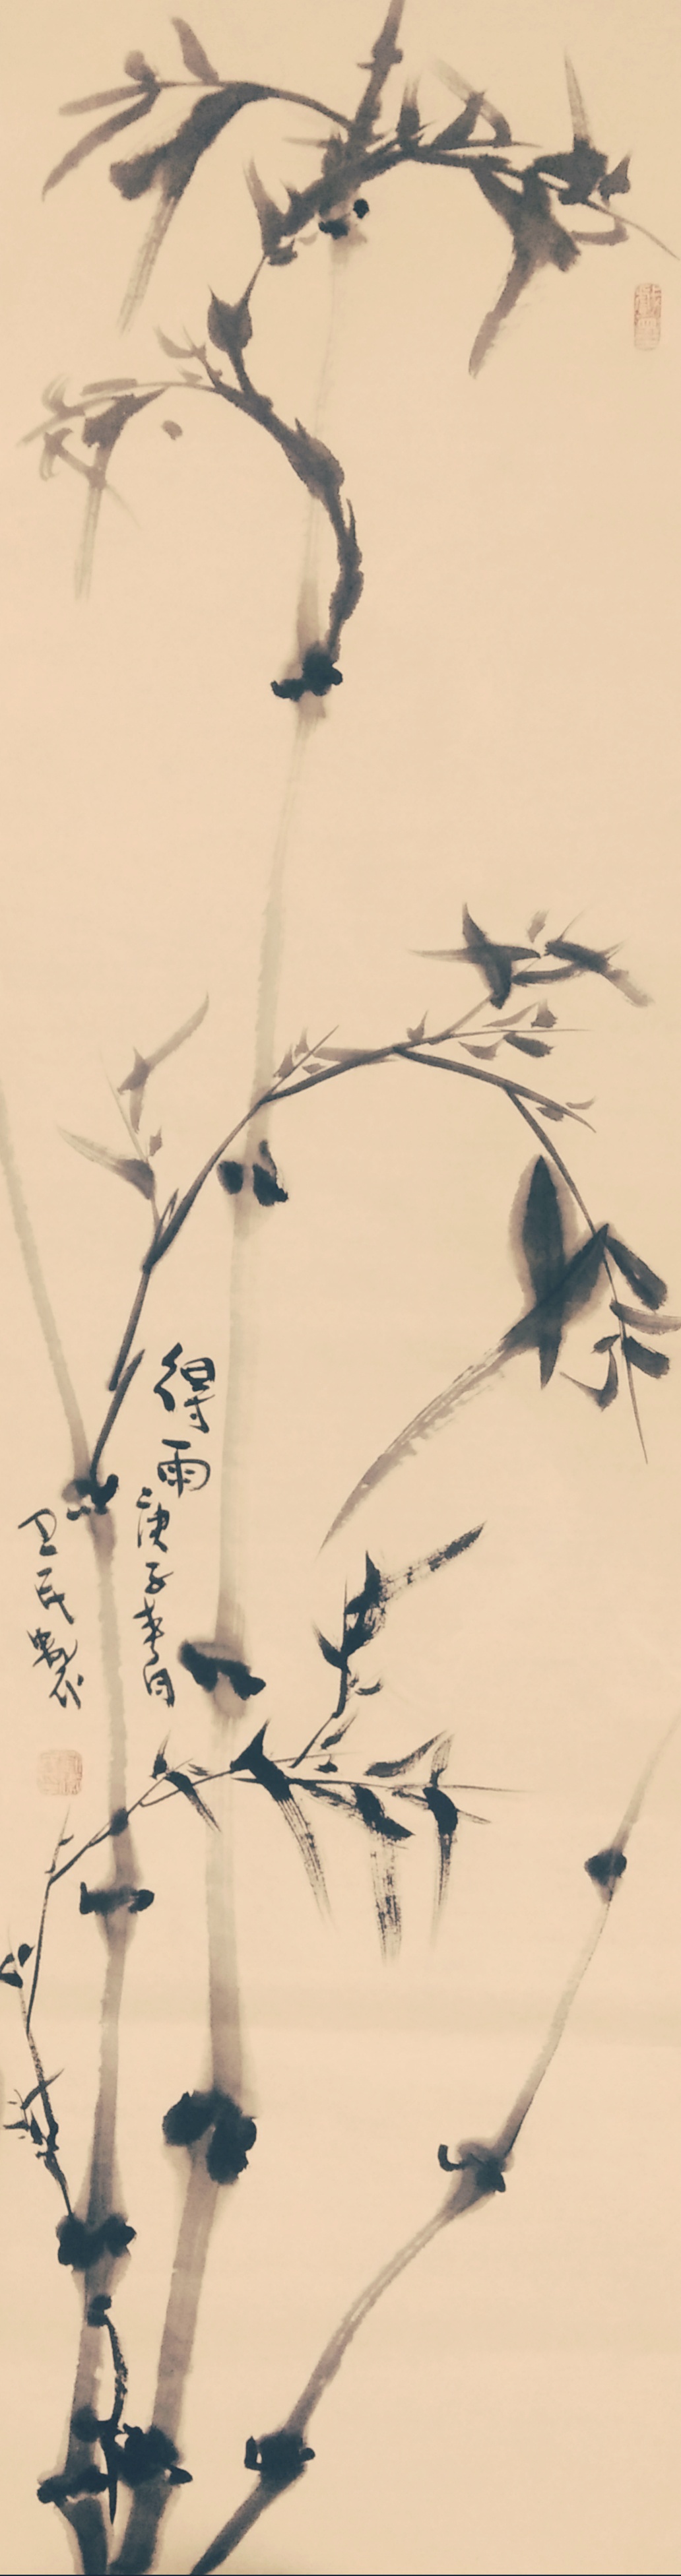 得雨
庚子春月
卫民製